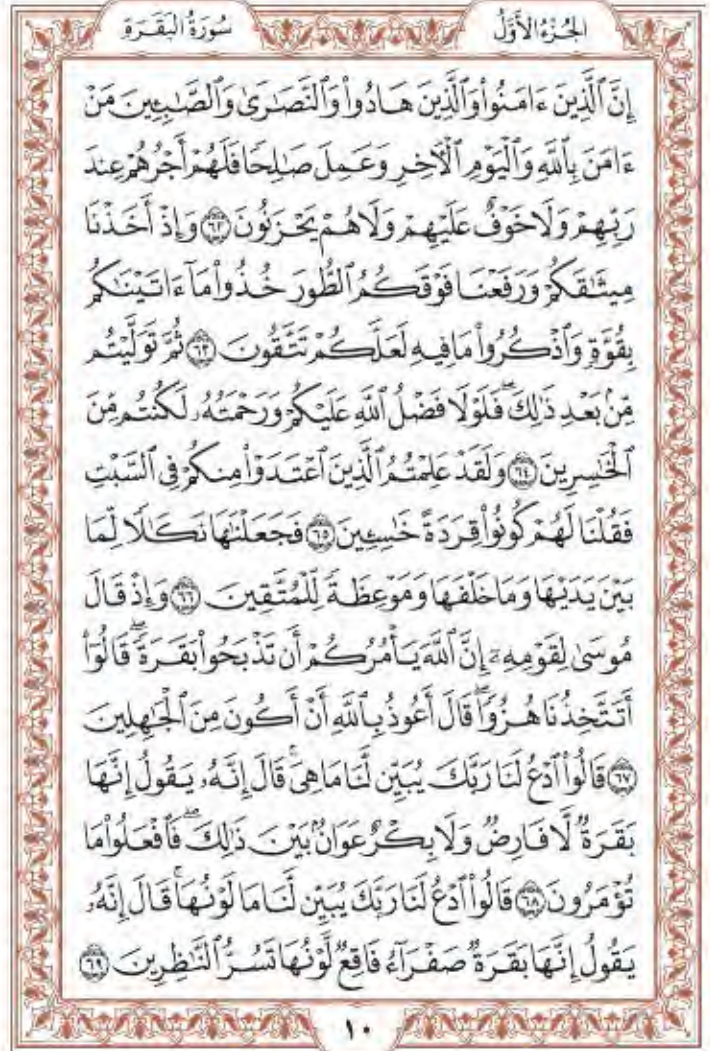 الجُزْءُ الأَوَّلُ
سُورَةُ البَقَرَةِ
إِنَّ ٱلَّذِينَ ءَامَنُوا۟ وَٱلَّذِينَ هَادُوا۟ وَٱلنَّصَـٰرَىٰ وَٱلصَّـٰبِـِٔينَ مَنْ
ءَامَنَ بِٱللَّهِ وَٱلْيَوْمِ ٱلْـَٔاخِرِ وَعَمِلَ صَـٰلِحًا فَلَهُمْ أَجْرُهُمْ عِندَ
رَبِّهِمْ وَلَا خَوْفٌ عَلَيْهِمْ وَلَا هُمْ يَحْزَنُونَ ٦٢ وَإِذْ أَخَذْنَا
مِيثَـٰقَكُمْ وَرَفَعْنَا فَوْقَكُمُ ٱلطُّورَ خُذُوا۟ مَآ ءَاتَيْنَـٰكُم
بِقُوَّةٍ وَٱذْكُرُوا۟ مَا فِيهِ لَعَلَّكُمْ تَتَّقُونَ ٦٣ ثُمَّ تَوَلَّيْتُم
مِّنۢ بَعْدِ ذَٰلِكَ ۖ فَلَوْلَا فَضْلُ ٱللَّهِ عَلَيْكُمْ وَرَحْمَتُهُۥ لَكُنتُم مِّنَ
ٱلْخَـٰسِرِينَ ٦٤ وَلَقَدْ عَلِمْتُمُ ٱلَّذِينَ ٱعْتَدَوْا۟ مِنكُمْ فِى ٱلسَّبْتِ
فَقُلْنَا لَهُمْ كُونُوا۟ قِرَدَةً خَـٰسِـِٔينَ ٦٥ فَجَعَلْنَـٰهَا نَكَـٰلًا لِّمَا
بَيْنَ يَدَيْهَا وَمَا خَلْفَهَا وَمَوْعِظَةً لِّلْمُتَّقِينَ ٦٦ وَإِذْ قَالَ
مُوسَىٰ لِقَوْمِهِۦٓ إِنَّ ٱللَّهَ يَأْمُرُكُمْ أَن تَذْبَحُوا۟ بَقَرَةً ۖ قَالُوٓا۟
أَتَتَّخِذُنَا هُزُوًا ۖ قَالَ أَعُوذُ بِٱللَّهِ أَنْ أَكُونَ مِنَ ٱلْجَـٰهِلِينَ
٦٧ قَالُوا۟ ٱدْعُ لَنَا رَبَّكَ يُبَيِّن لَّنَا مَا هِىَ ۚ قَالَ إِنَّهُۥ يَقُولُ إِنَّهَا
بَقَرَةٌ لَّا فَارِضٌ وَلَا بِكْرٌ عَوَانٌۢ بَيْنَ ذَٰلِكَ ۖ فَٱفْعَلُوا۟ مَا
تُؤْمَرُونَ ٦٨ قَالُوا۟ ٱدْعُ لَنَا رَبَّكَ يُبَيِّن لَّنَا مَا لَوْنُهَا ۚ قَالَ إِنَّهُۥ
يَقُولُ إِنَّهَا بَقَرَةٌ صَفْرَآءُ فَاقِعٌ لَّوْنُهَا تَسُرُّ ٱلنَّـٰظِرِينَ ٦٩
١٠